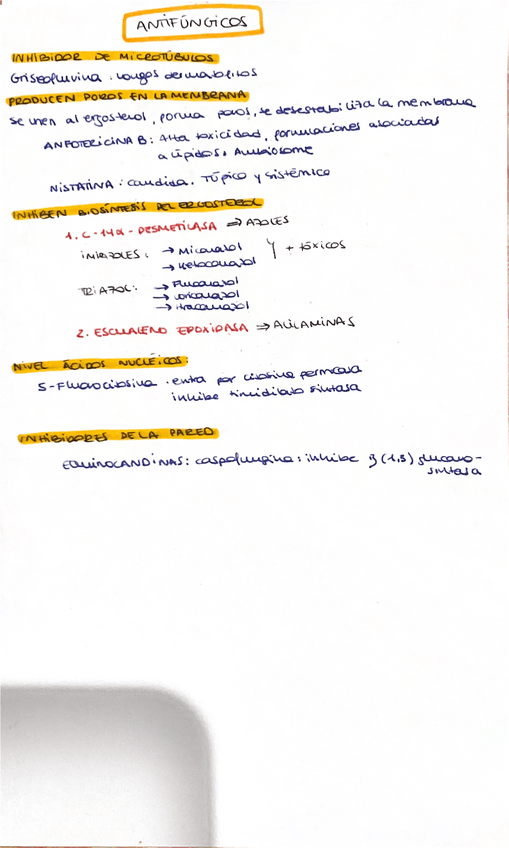 ANTIFÚNGICOS
INHIBIDOR DE MICROTÚBULOS
Griseofulvina: hongos dermatofitos
PRODUCEN POROS EN LA MEMBRANA
Se unen al ergosterol, forma poros, se desestabiliza la membrana
ANFOTERICINA B: Alta toxicidad, formulaciones asociadas
a lípidos. Ambisome
NISTATINA: candida. Tópico y sistémico
INHIBEN BIOSÍNTESIS DEL ERGOSTEROL
1. C-14α-DESMETILASA ⇒ AZOLES
IMIDAZOLES: → Miconazol
→ Ketoconazol } + tóxicos
TRIAZOL: → Fluconazol
→ voriconazol
→ itraconazol
2. ESCUALENO EPOXIDASA ⇒ ALILAMINAS
NIVEL ÁCIDOS NUCLÉICOS:
5-Fluorocitosina. entra por citosina permeasa
inhibe timidilato sintasa
INHIBIDORES DE LA PARED
EQUINOCANDINAS: caspofungina: inhibe β(1,3) glucano-
sintasa